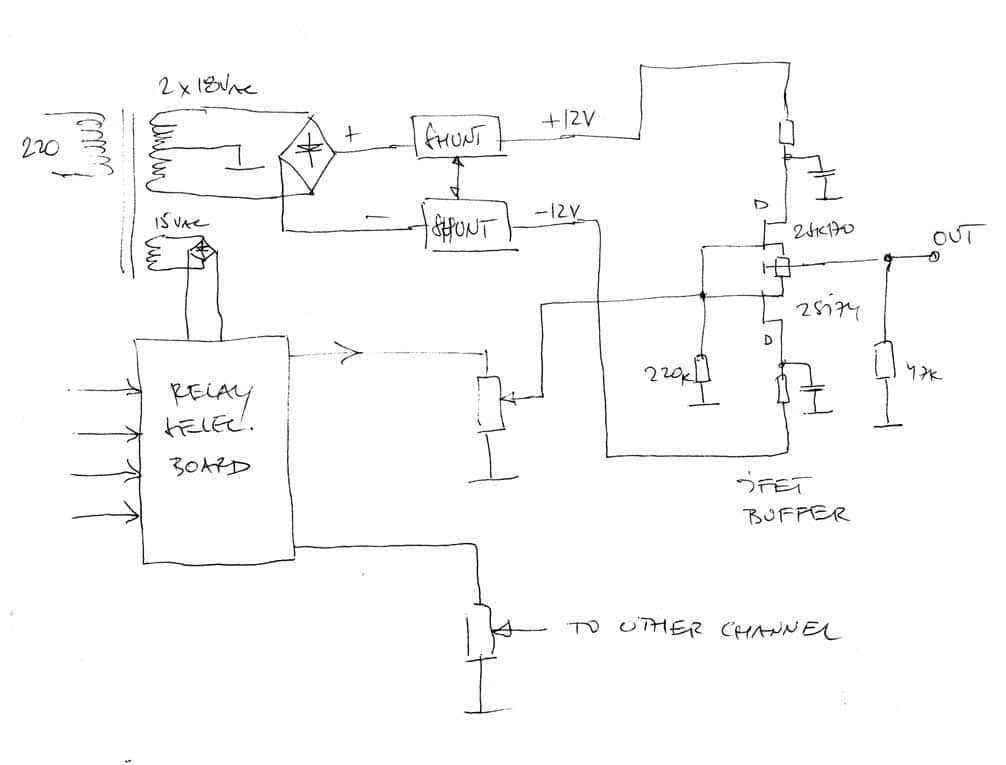 2 x 18VAC
220
+
SHUNT
+12V
-
SHUNT
-12V
15VAC
D
2SK170
OUT
2SJ74
D
220K
47K
RELAY
SELEC.
BOARD
JFET
BUFFER
TO OTHER CHANNEL